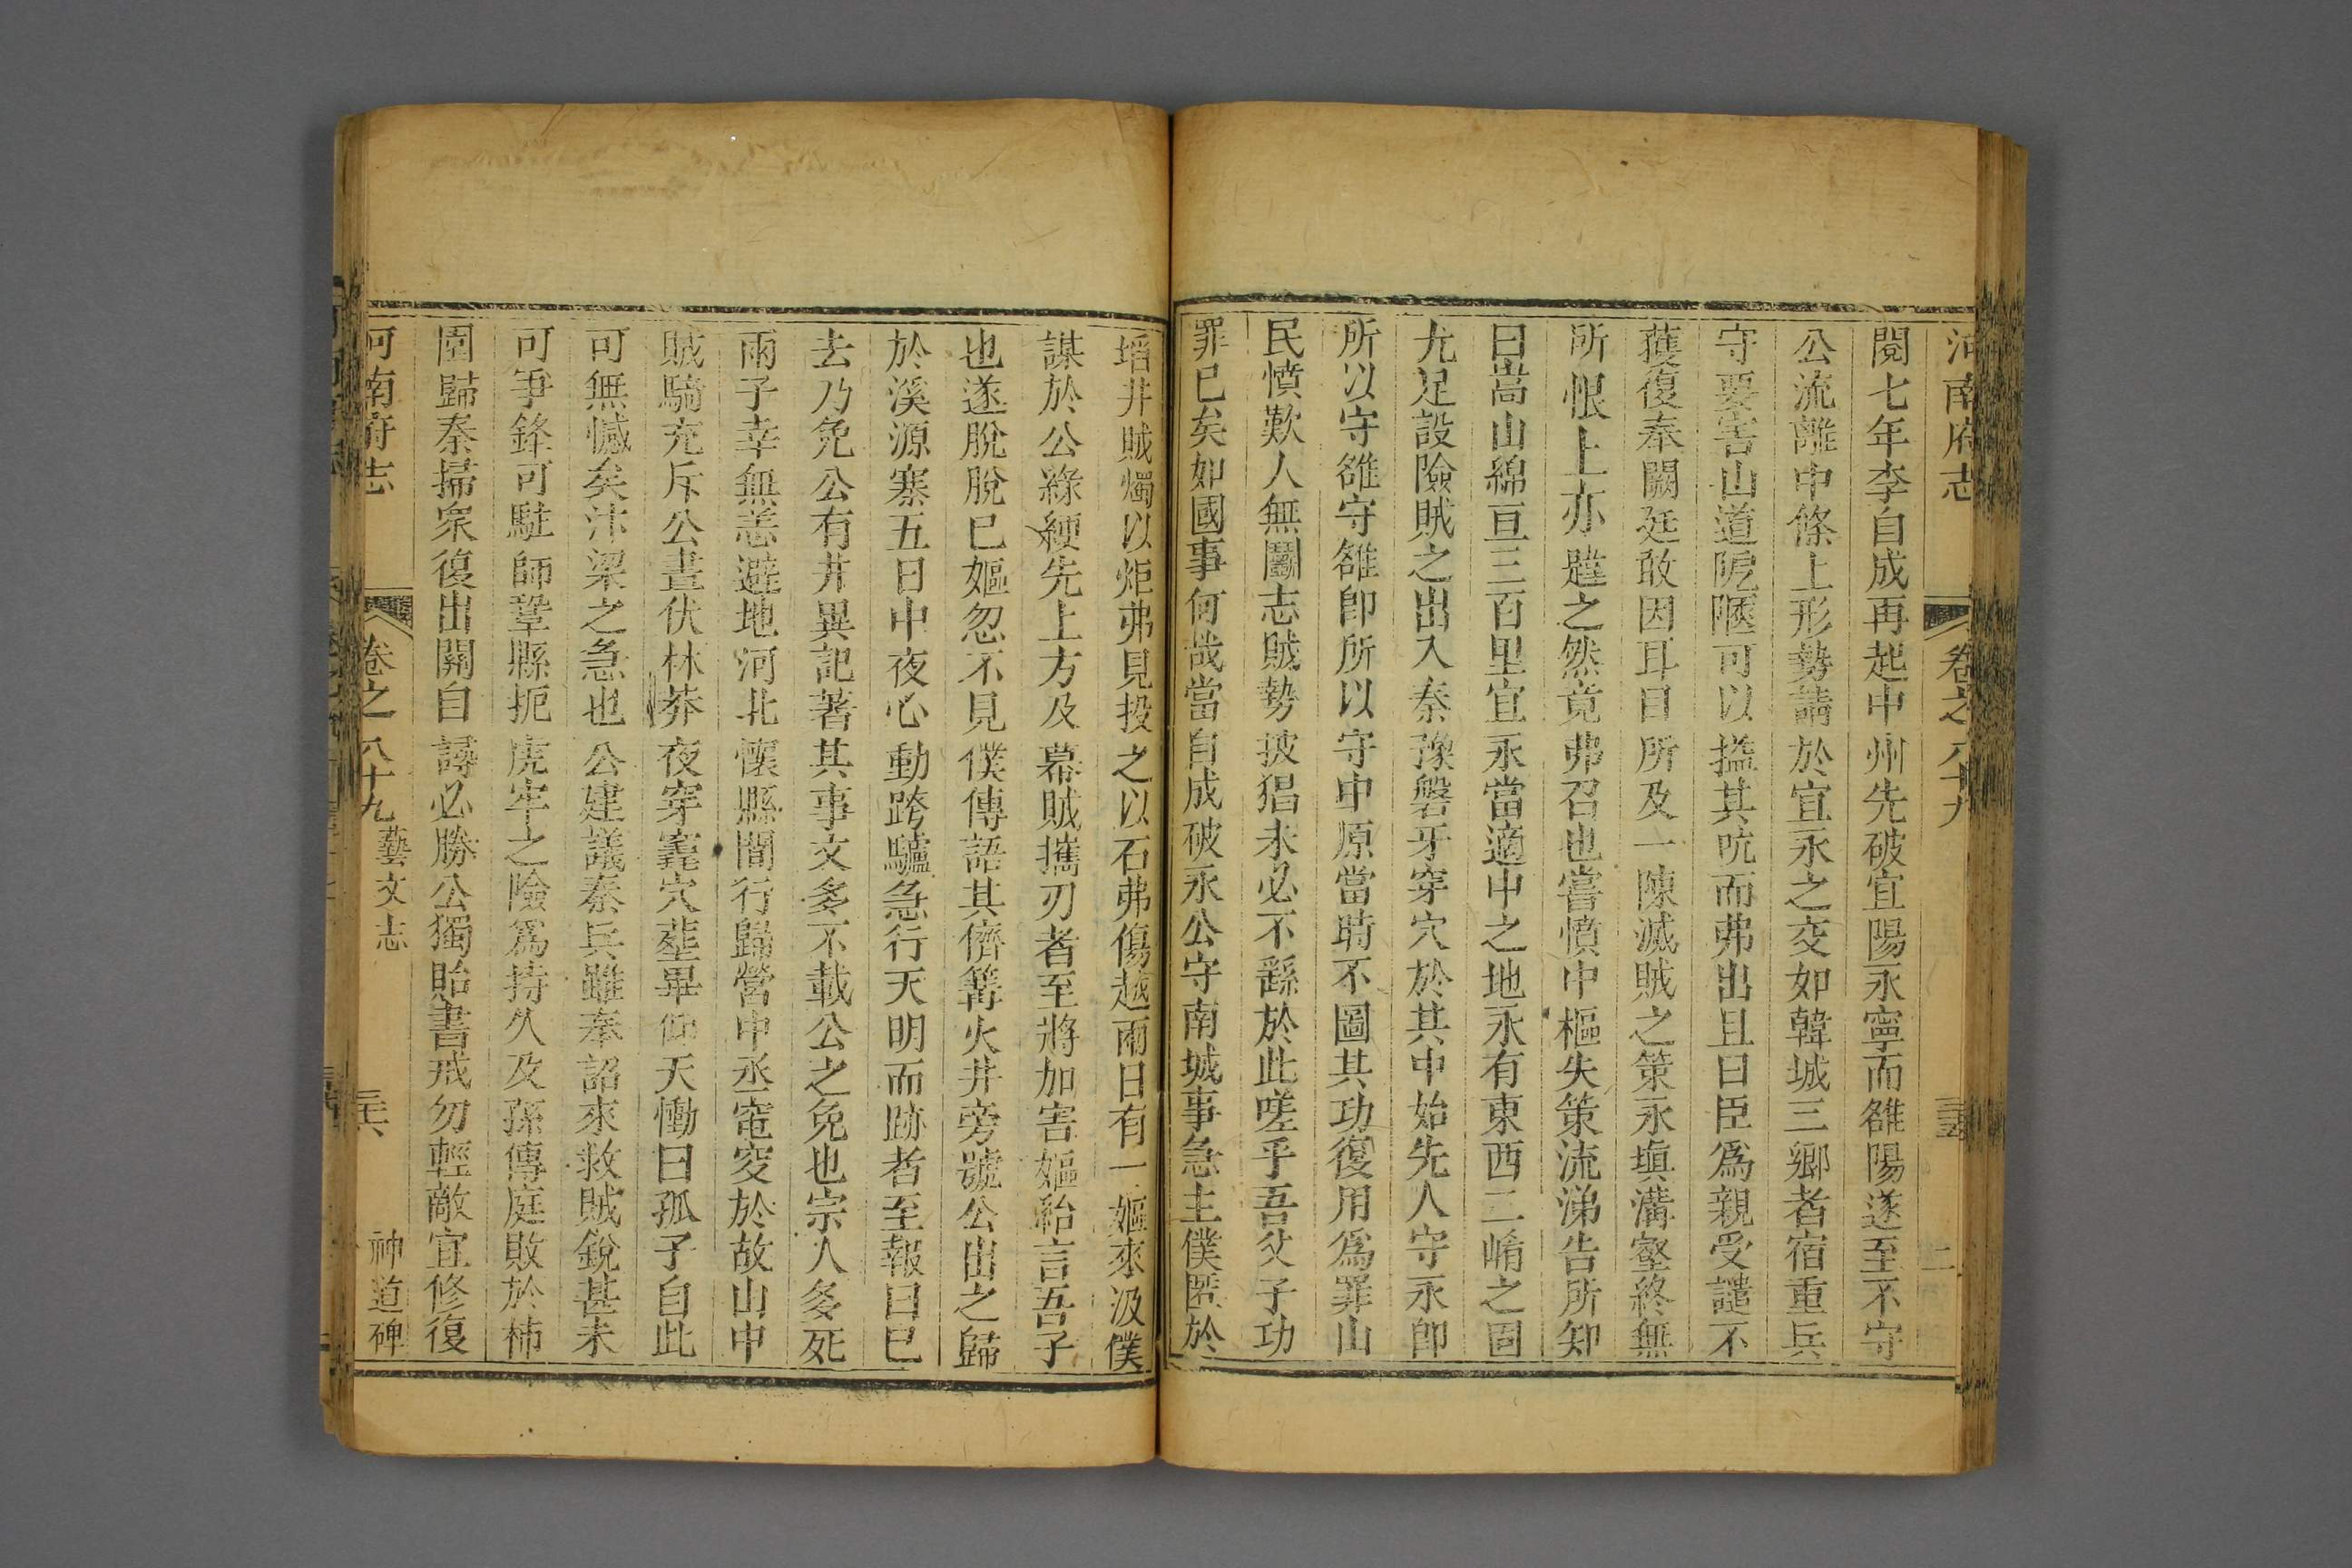 河南府志 卷之八十九
閱七年李自成再起中州先破宜陽永寧而雒陽遂至不守
公流離中條上形勢請於宜永之交如韓城三鄉者宿重兵
守要害山道阨隘可以搤其吭而弗出且曰臣爲親受譴不
獲復奉闕廷敢因耳目所及一陳滅賊之策永塡溝壑終無
所恨上亦韙之然竟弗召也嘗憤中樞失策流涕告所知
曰嵩山綿亘三百里宜永當適中之地永有東西二崤之固
尤足設險賊之出入秦豫磐牙穿穴於其中始先人守永卽
所以守雒守雒卽所以守中原當時不圖其功復用爲罪山
民憤歎人無鬭志賊勢披猖未必不繇於此嗟乎吾父子功
罪已矣如國事何哉當自成破永公守南城事急主僕匿於
壻井賊燭以炬弗見投之以石弗傷越兩日有一嫗來汲僕
謀於公綠綆先上方及幕賊攜刃者至將加害嫗紿言吾子
也遂脫脫已嫗忽不見僕傳語其儕篝火井旁號公出之歸
於溪源寨五日中夜心動跨驢急行天明而跡者至報曰已
去乃免公有井異記著其事文多不載公之免也宗人多死
兩子幸無恙避地河北懷縣閒行歸營中丞窀穸於故山中
賊騎充斥公晝伏林莽夜穿竁穴塟畢仰天慟曰孤子自此
可無憾矣汴梁之急也公建議秦兵雖奉詔來救賊銳甚未
可爭鋒可駐師鞏縣扼虎牢之險爲持久及孫傳庭敗於柿
園歸秦掃衆復出關自謂必勝公獨貽書戒勿輕敵宜修復
河南府志 卷之八十九 藝文志 三六 神道碑